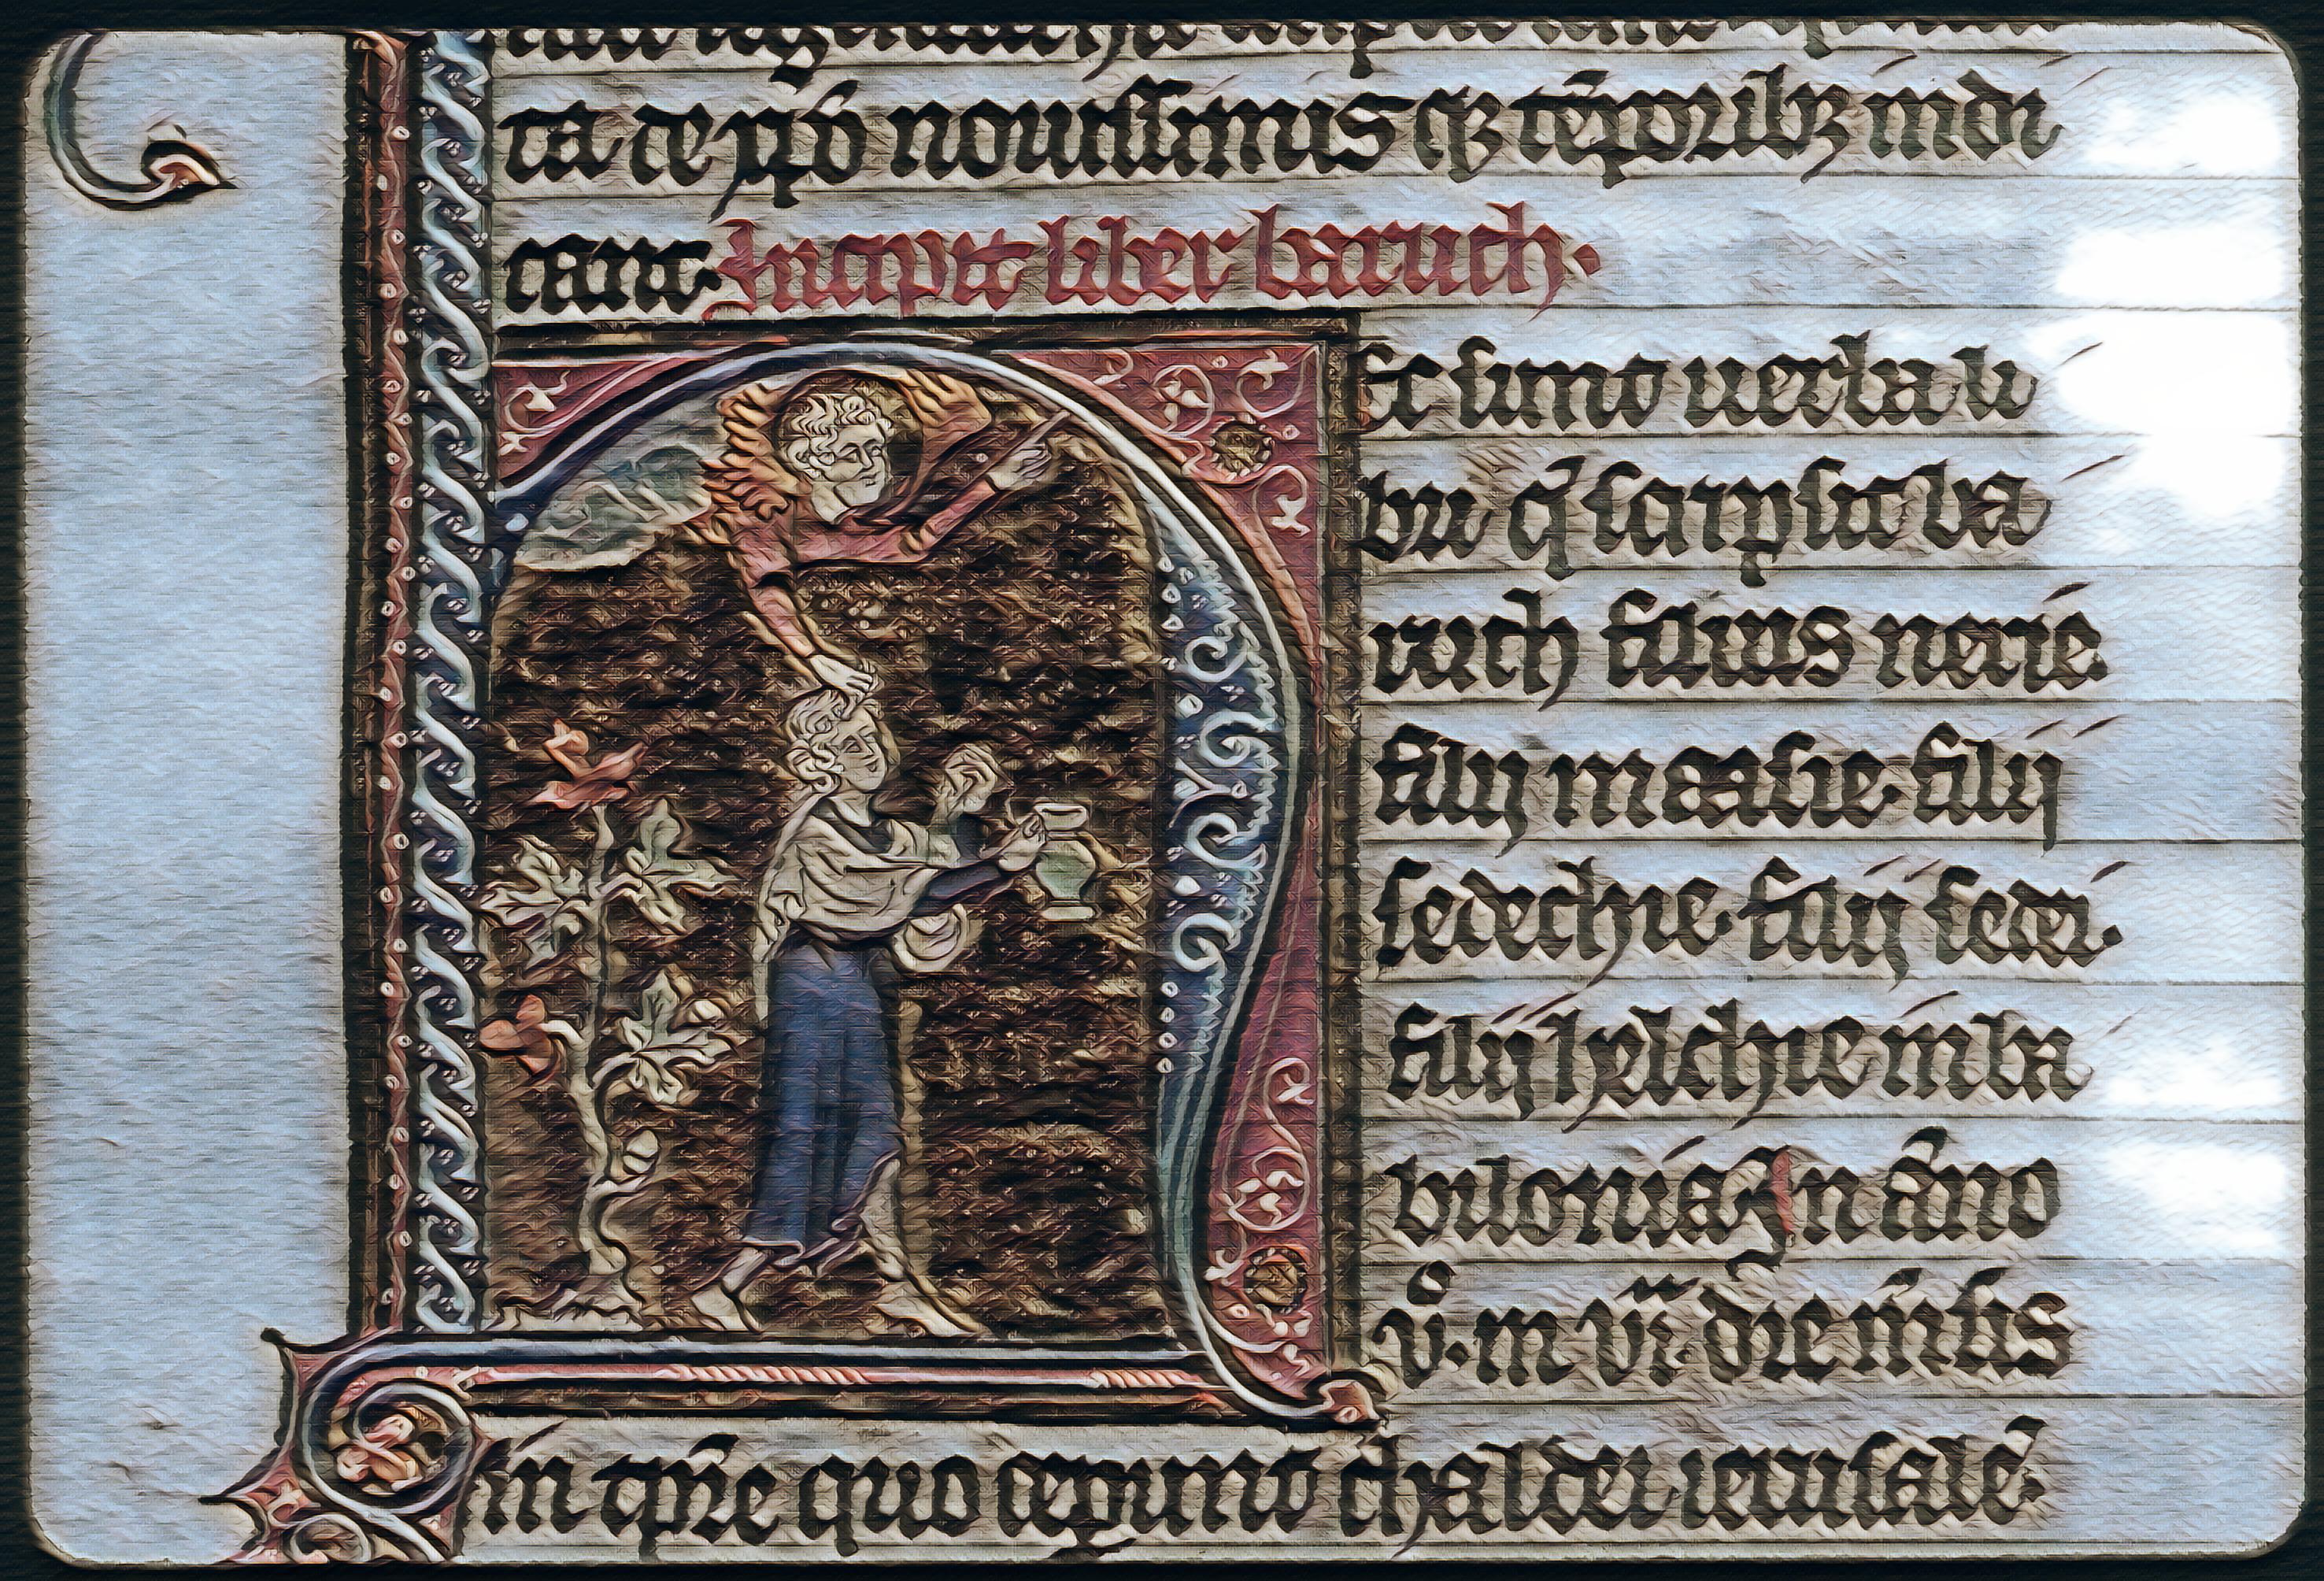 ta de xp̄o nouissimis qꝫ tēporibꝫ indi
cant. Incipit liber baruch.
ec sunt uerba li
bri q̄ scripsit ba
ruch filius nerie.
filij maasie. filij
sedechie. filij sedei.
filij helchie in ba
bilonia. In āno
vͦ. in vii. die mēsis
in tp̄re quo ceperunt chaldei ierusalē.